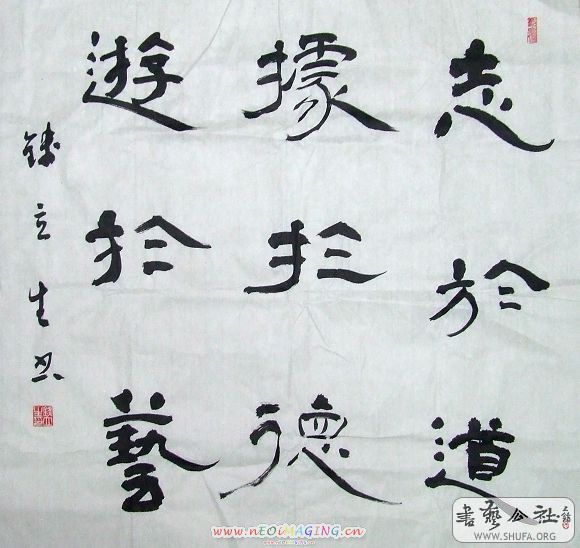 志於道
據於德
遊於藝
錢立生书
書藝公社
WWW.SHUFA.ORG
www.nEOiMAGiNG.cn